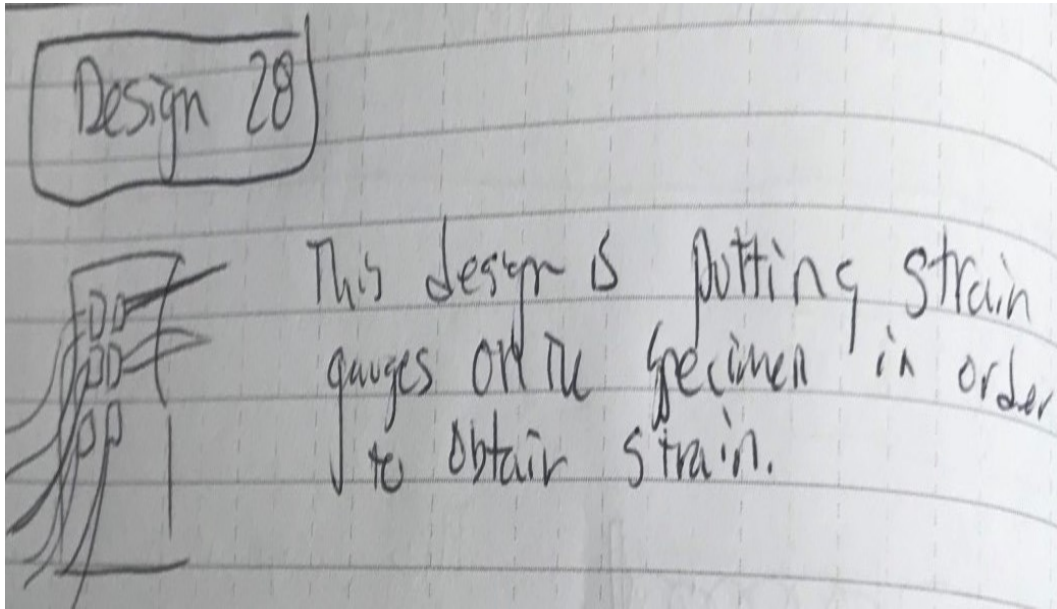 Design 28
This design is putting strain
gauges on the specimen in order
to obtain strain.